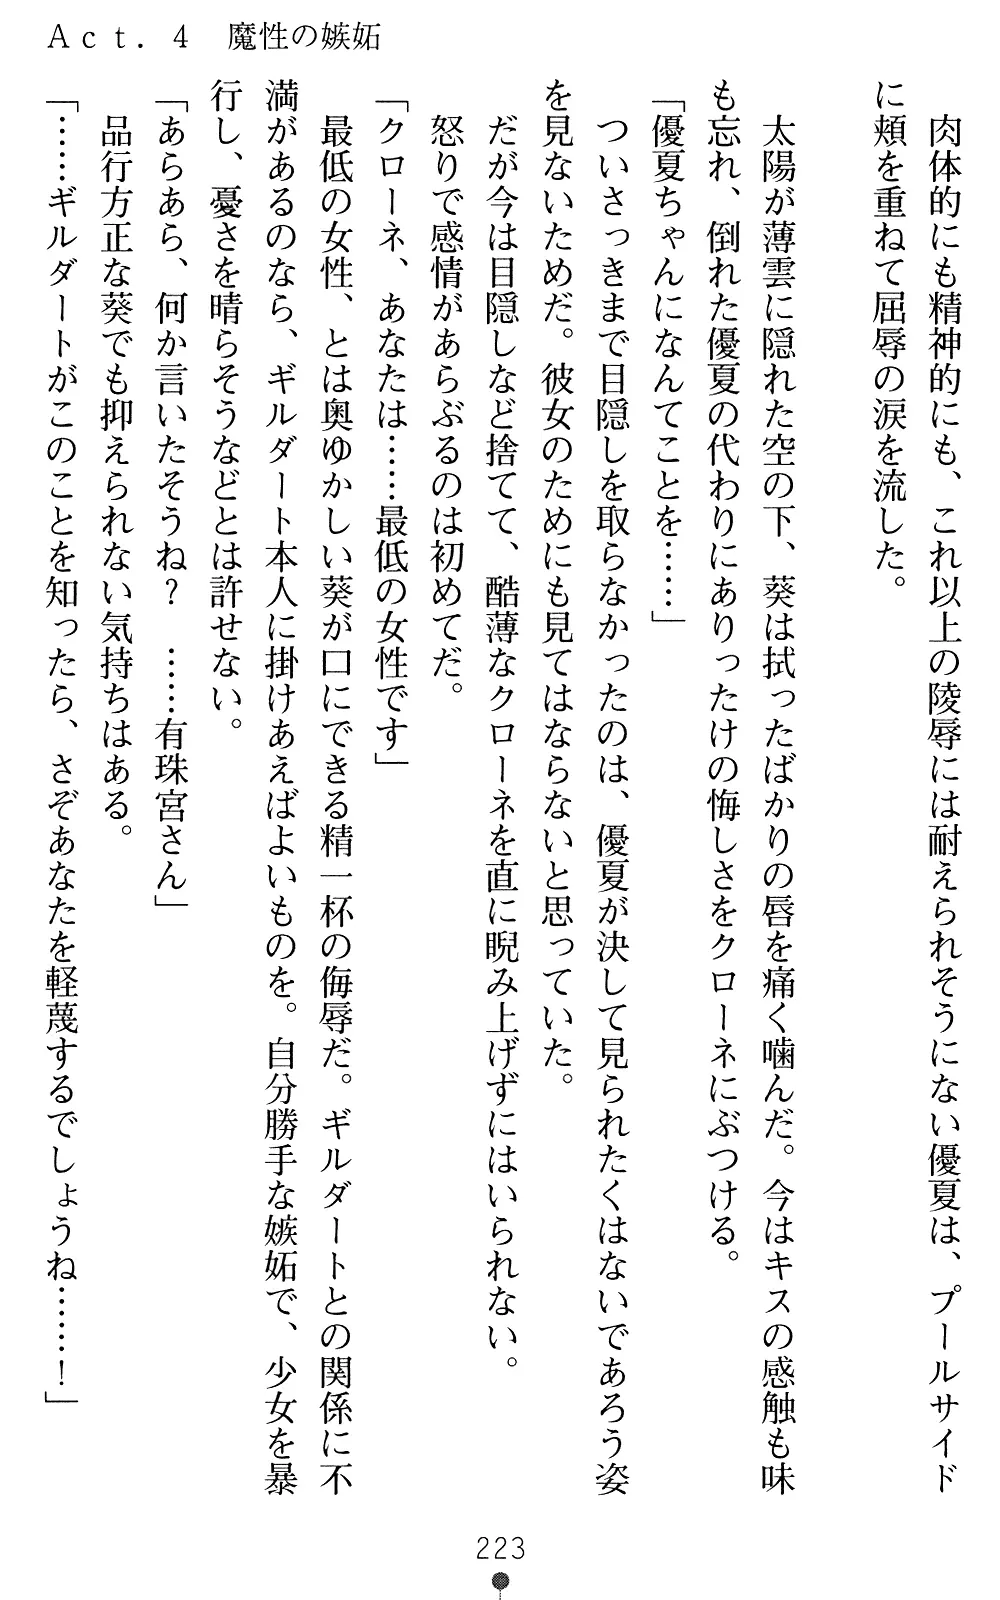 Act. 4　魔性の嫉妬
　肉体的にも精神的にも、これ以上の陵辱には耐えられそうにない優夏は、プールサイド
に頬を重ねて屈辱の涙を流した。
　太陽が薄雲に隠れた空の下、葵は拭ったばかりの唇を痛く噛んだ。今はキスの感触も味
も忘れ、倒れた優夏の代わりにありったけの悔しさをクローネにぶつける。
「優夏ちゃんになんてことを……」
　ついさっきまで目隠しを取らなかったのは、優夏が決して見られたくはないであろう姿
を見ないためだ。彼女のためにも見てはならないと思っていた。
　だが今は目隠しなど捨てて、酷薄なクローネを直に睨み上げずにはいられない。
　怒りで感情があらぶるのは初めてだ。
「クローネ、あなたは……最低の女性です」
　最低の女性、とは奥ゆかしい葵が口にできる精一杯の侮辱だ。ギルダートとの関係に不
満があるのなら、ギルダート本人に掛けあえばよいものを。自分勝手な嫉妬で、少女を暴
行し、憂さを晴らそうなどとは許せない。
「あらあら、何か言いたそうね？　……有珠宮さん」
　品行方正な葵でも抑えられない気持ちはある。
「……ギルダートがこのことを知ったら、さぞあなたを軽蔑するでしょうね……！」
223